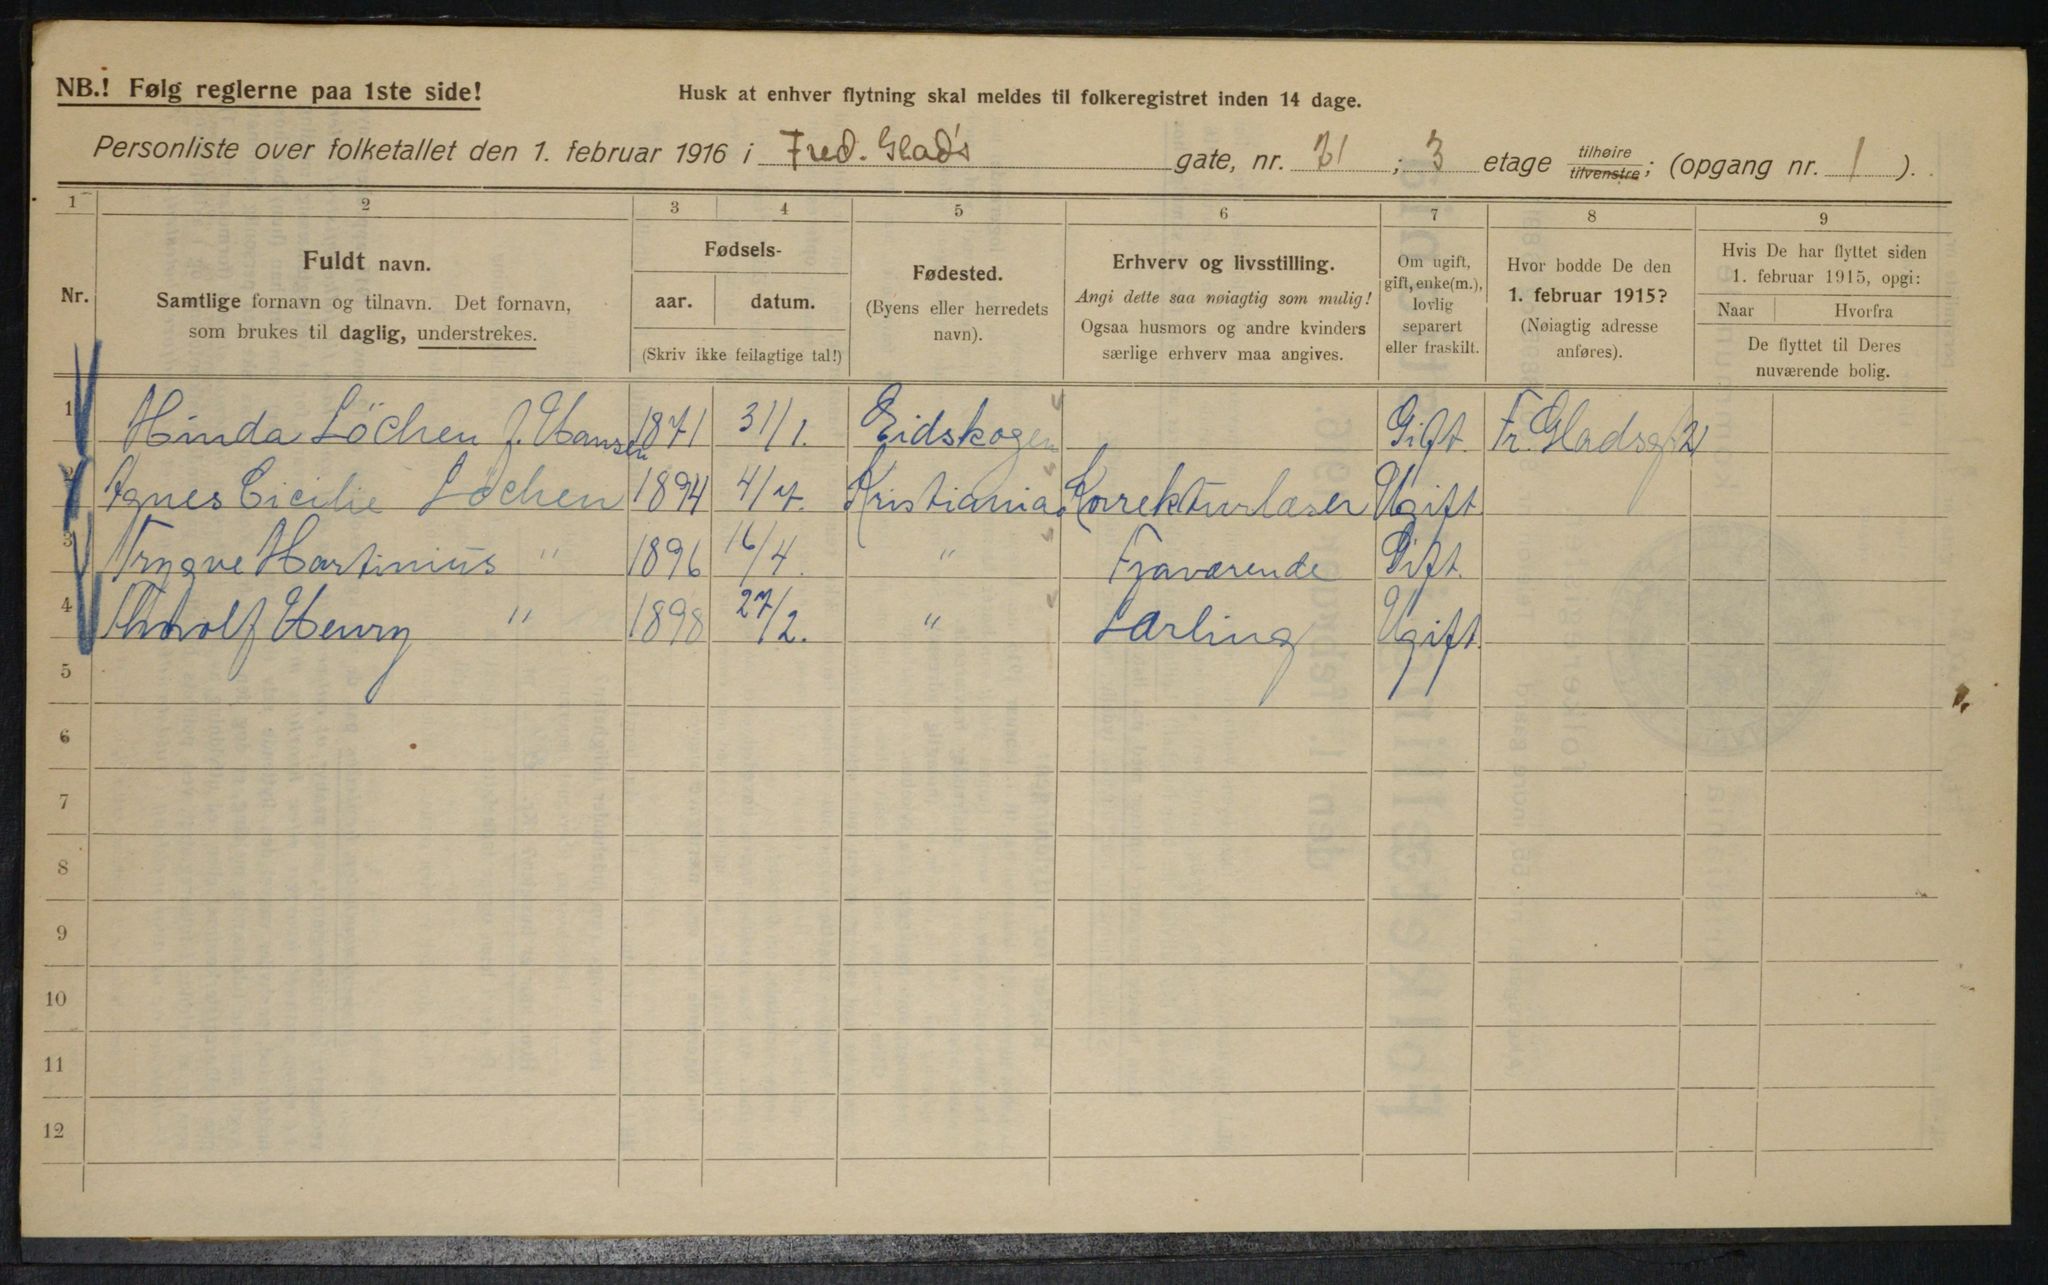 NB.! Følg reglerne paa 1ste side!
Husk at enhver flytning skal meldes til folkeregistret inden 14 dage.
Personliste over folketallet den 1. februar 1916 i Fred. Glads gate, nr. 21; 3 etage tilhøire tilvenstre; (opgang nr. 1).
1 2 3 4 5 6 7 8 9
Nr.
Fuldt navn.
Samtlige fornavn og tilnavn. Det fornavn,
som brukes til daglig, understrekes.
Fødsels-
aar. datum.
(Skriv ikke feilagtige tal!)
Fødested.
(Byens eller herredets
navn).
Erhverv og livsstilling.
Angi dette saa nøiagtig som mulig!
Ogsaa husmors og andre kvinders
særlige erhverv maa angives.
Om ugift,
gift, enke(m.),
lovlig
separert
eller fraskilt.
Hvor bodde De den
1. februar 1915?
(Nøiagtig adresse
anføres).
Hvis De har flyttet siden
1. februar 1915, opgi:
Naar Hvorfra
De flyttet til Deres
nuværende bolig.
1 Hinda Löchen f. Hansen 1871 31/1. Eidskogen Gift. Fr. Gladsgt 21
2 Agnes Cicilie Löchen 1894 4/7. Kristiania Korrekturlæser Ugift.
3 Trygve Martinius " 1896 16/4. " Fraværende Gift.
4 Thorolf Henry " 1898 27/2. " Lærling Ugift.
5
6
7
8
9
10
11
12